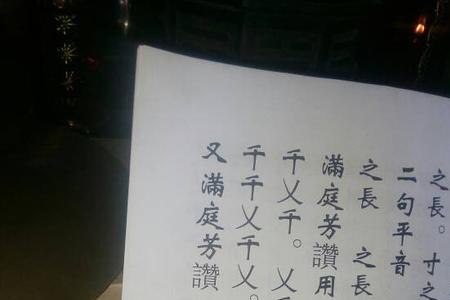 之長。寸之
二句平音
之長　之長
滿庭芳讚用
千乂千。乂
千千乂千乂。
又滿庭芳讚